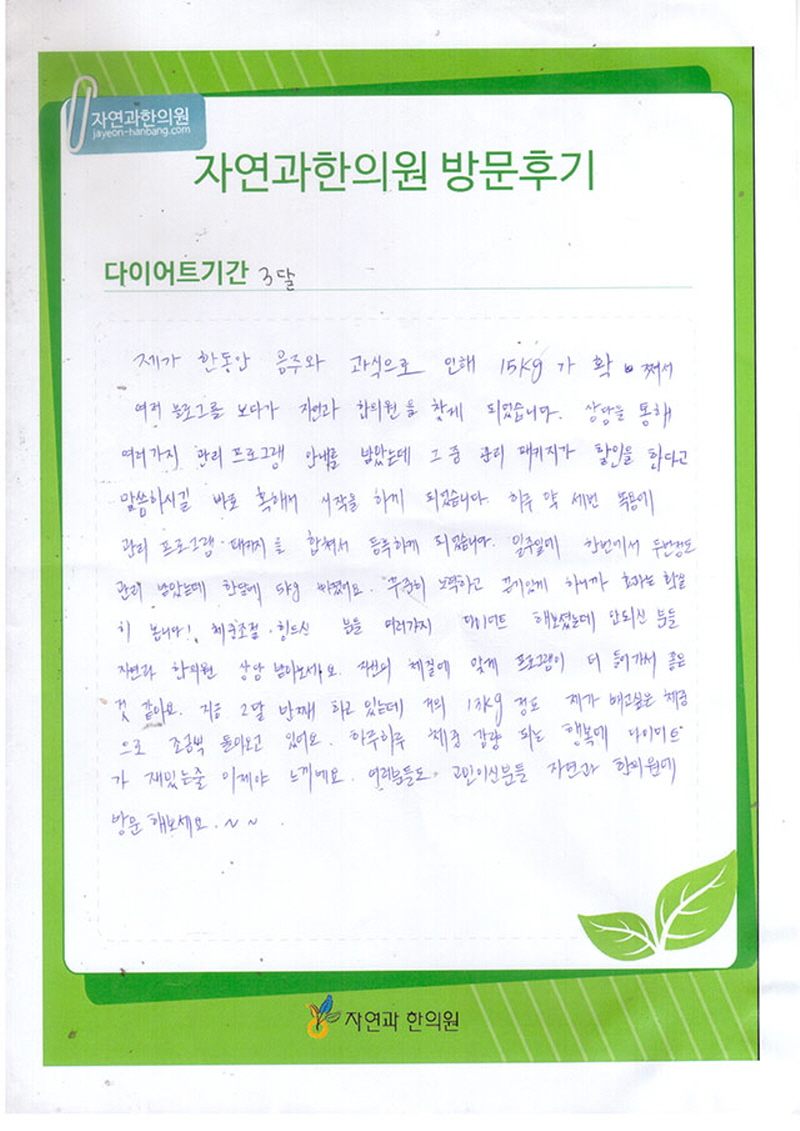 자연과한의원
jayeon-hanbang.com
자연과한의원 방문후기
다이어트기간 3달
제가 한동안 음주와 과식으로 인해 15kg가 확 쪄서
여러 블로그를 보다가 자연과 한의원을 찾게 되었습니다. 상담을 통해
여러가지 관리 프로그램 안내를 받았는데 그 중 관리 패키지가 할인을 한다고
말씀하시길 바로 혹해서 시작을 하게 되었습니다. 하루 약 세번 복용에
관리 프로그램 패키지를 합쳐서 등록하게 되었습니다. 일주일에 한번에서 두번정도
관리 받았는데 한달에 5kg 빠졌어요. 꾸준히 노력하고 끈기있게 하니까 효과는 확실
히 봅니다! 체중조절 힘드신 분들 여러가지 다이어트 해보셨는데 안되신 분들
자연과 한의원 상담 받아보세요. 자신의 체질에 맞게 프로그램이 더 들어가서 좋은
것 같아요. 지금 2달 반째 하고 있는데 거의 13kg 정도 제가 빼고싶은 체중
으로 조금씩 돌아오고 있어요. 하루하루 체중 감량 되는 행복에 다이어트
가 재밌는줄 이제야 느끼네요. 여러분들도 고민이신분들 자연과 한의원에
방문 해보세요.~~
자연과 한의원